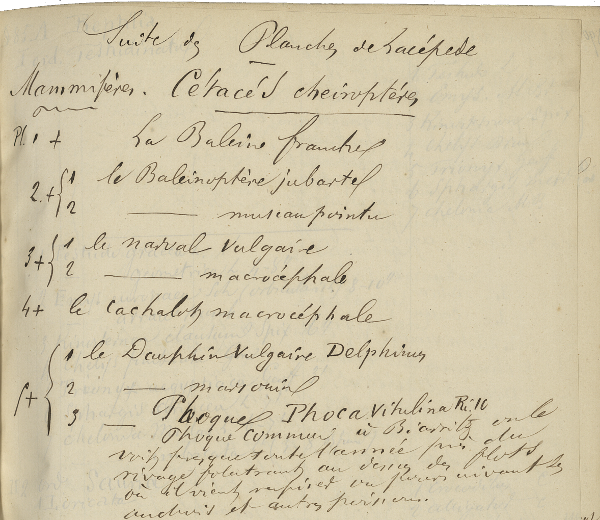 Suite des Planches de Lacépède
Mammifères. Cétacés cheiroptères
Pl. 1 + La Baleine franche
2 + { 1 le Baleinoptère jubarte
2 —— museau pointu
3 + { 1 le narval vulgaire
2 —— macrocéphale
4 + le cachalot macrocéphale
5 + { 1 le Dauphin Vulgaire Delphinus
2 —— marsouin
3 — Phoque Phoca Vitulina
Phoque commun à Biarritz on le
voit presque toute l'année près du
rivage au dessus des flots
où il vient respirer
anchois et autres poissons.